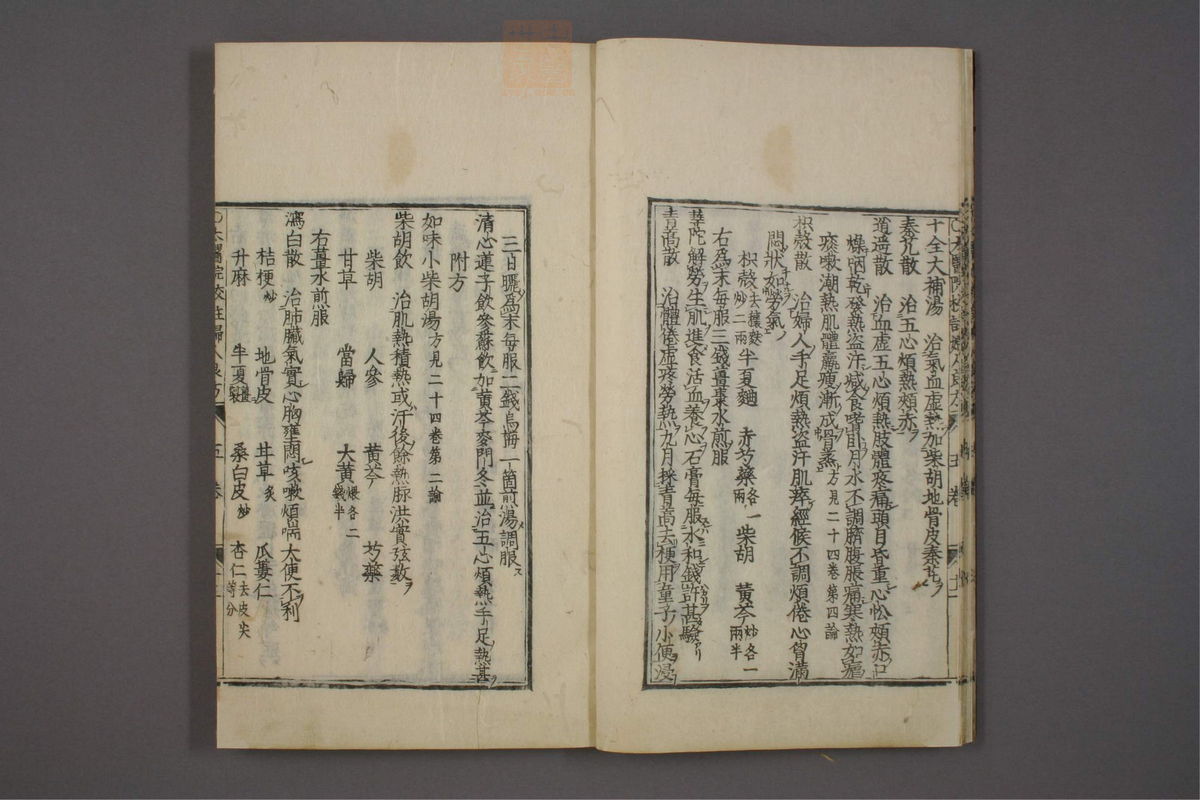 十全大補湯　治氣血虛熱加柴胡地骨皮秦艽
秦艽散　治五心煩熱頰赤
逍遥散　治血虛五心煩熱肢體疼痛頭目昏重心忪頰赤口
燥咽乾發熱盗汗減食嗜臥月水不調臍腹脹痛寒熱如瘧
痰嗽潮熱肌體羸瘦漸成骨蒸方見二十四卷第四論
枳殼散　治婦人手足煩熱盗汗肌瘁經候不調煩倦心胷滿
悶狀如勞氣
枳殼去穰麩炒二兩　半夏麯　赤芍藥各一兩　柴胡　黄芩炒各一兩半
右爲末每服三錢薑棗水煎服
華陀解勞生肌進食活血養心石膏每服水和錢許甚驗
青蒿散　治體倦虛痰勞熱九月採青蒿去梗用童子小便浸
三日曬爲末每服二錢烏梅一箇煎湯調服
清心蓮子飲參蘇飲加黄芩麥門冬並治五心煩熱手足熱甚
附方
如味小柴胡湯方見二十四卷第二論
柴胡飲　治肌熱積熱或汗後餘熱脈洪實弦數
柴胡　人參　黄芩　芍藥
甘草　當歸　大黄煨各二錢半
右薑水煎服
瀉白散　治肺臟氣實心胸壅悶咳嗽煩喘大便不利
桔梗炒　地骨皮　甘草炙　瓜蔞仁
升麻　半夏薑製　桑白皮炒　杏仁去皮尖等分